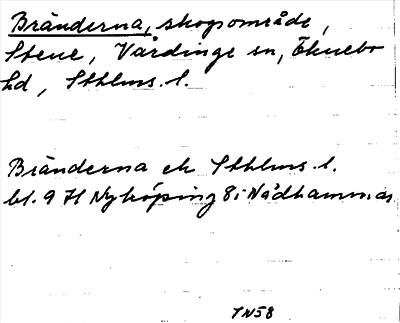 Bränderna, skogsområde,
Stene, Vårdinge sn, Öknebo
hd, Sthlms. l.
Bränderna ek Sthlms. l.
bl. 9 H Nyköping 8i Nådhammar
TN58